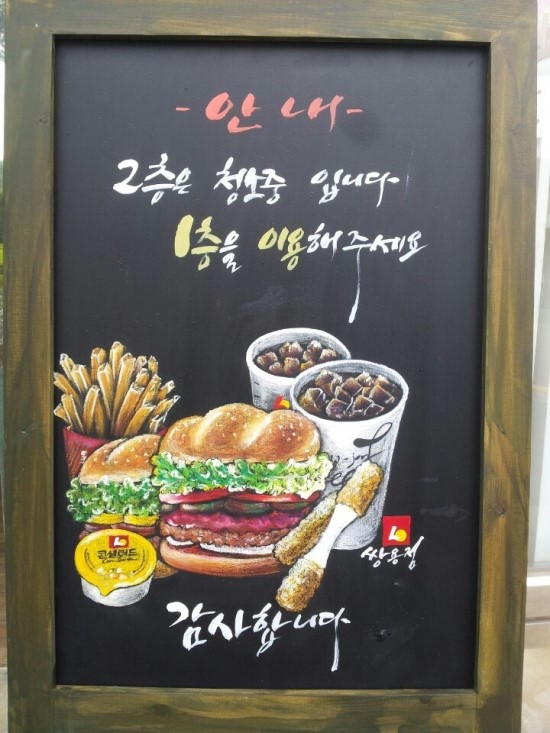 -안내-
2층은 청소중 입니다
1층을 이용해주세요
콘샐러드
쌍용점
감사합니다